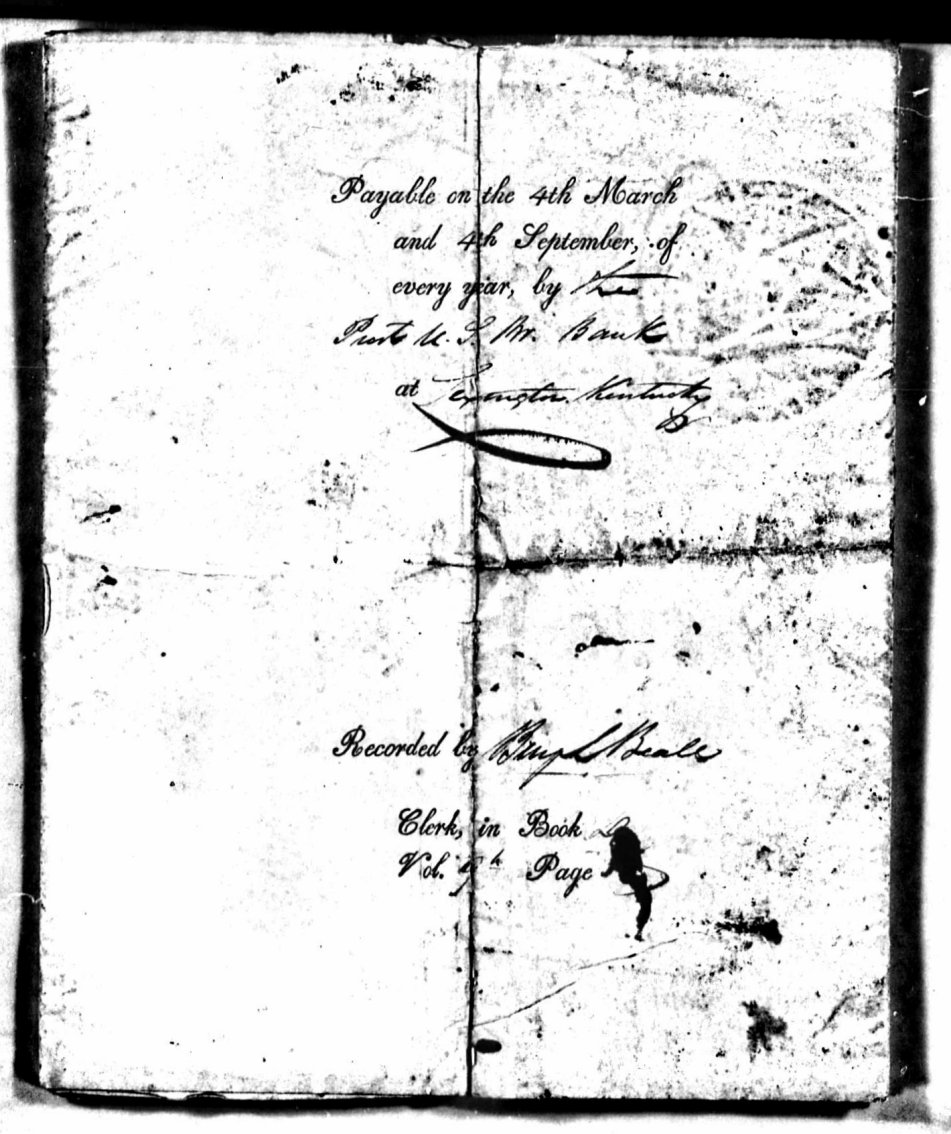 Payable on the 4th March
and 4th September, of
every year, by the
Prest U. S. Br. Bank
at Lexington Kentucky
Recorded by Benj L Beall
Clerk, in Book
Vol. 7th Page